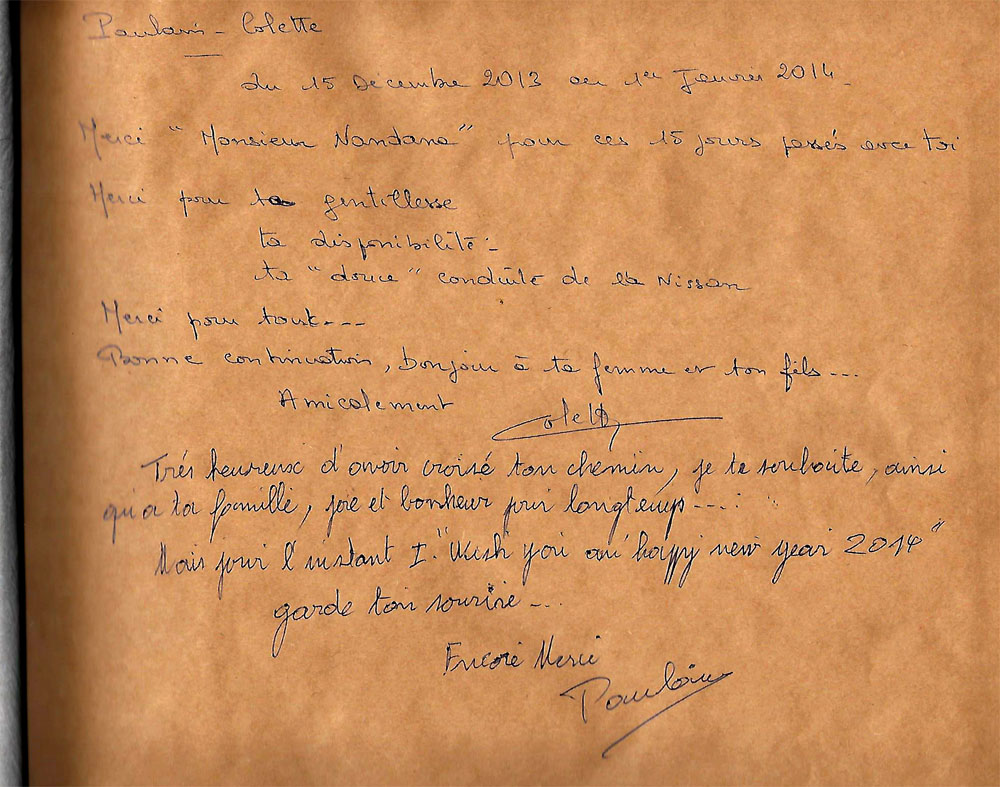 Poulain - Colette
du 15 Decembre 2013 au 1er Janvier 2014 -
Merci "Monsieur Nandana" pour ces 15 jours passés avec toi
Merci pour ta gentillesse
ta disponibilité -
ta "douce" conduite de la Nissan
Merci pour tout---
Bonne continuation, bonjour à ta femme et ton fils ...
Amicalement Colette
Très heureux d'avoir croisé ton chemin, je te souhaite, ainsi
qu'a ta famille, joie et bonheur pour longtemps ....
Mais pour l'instant I "Wish you an happy new year 2014"
garde ton sourire ...
Encore Merci
Poulain